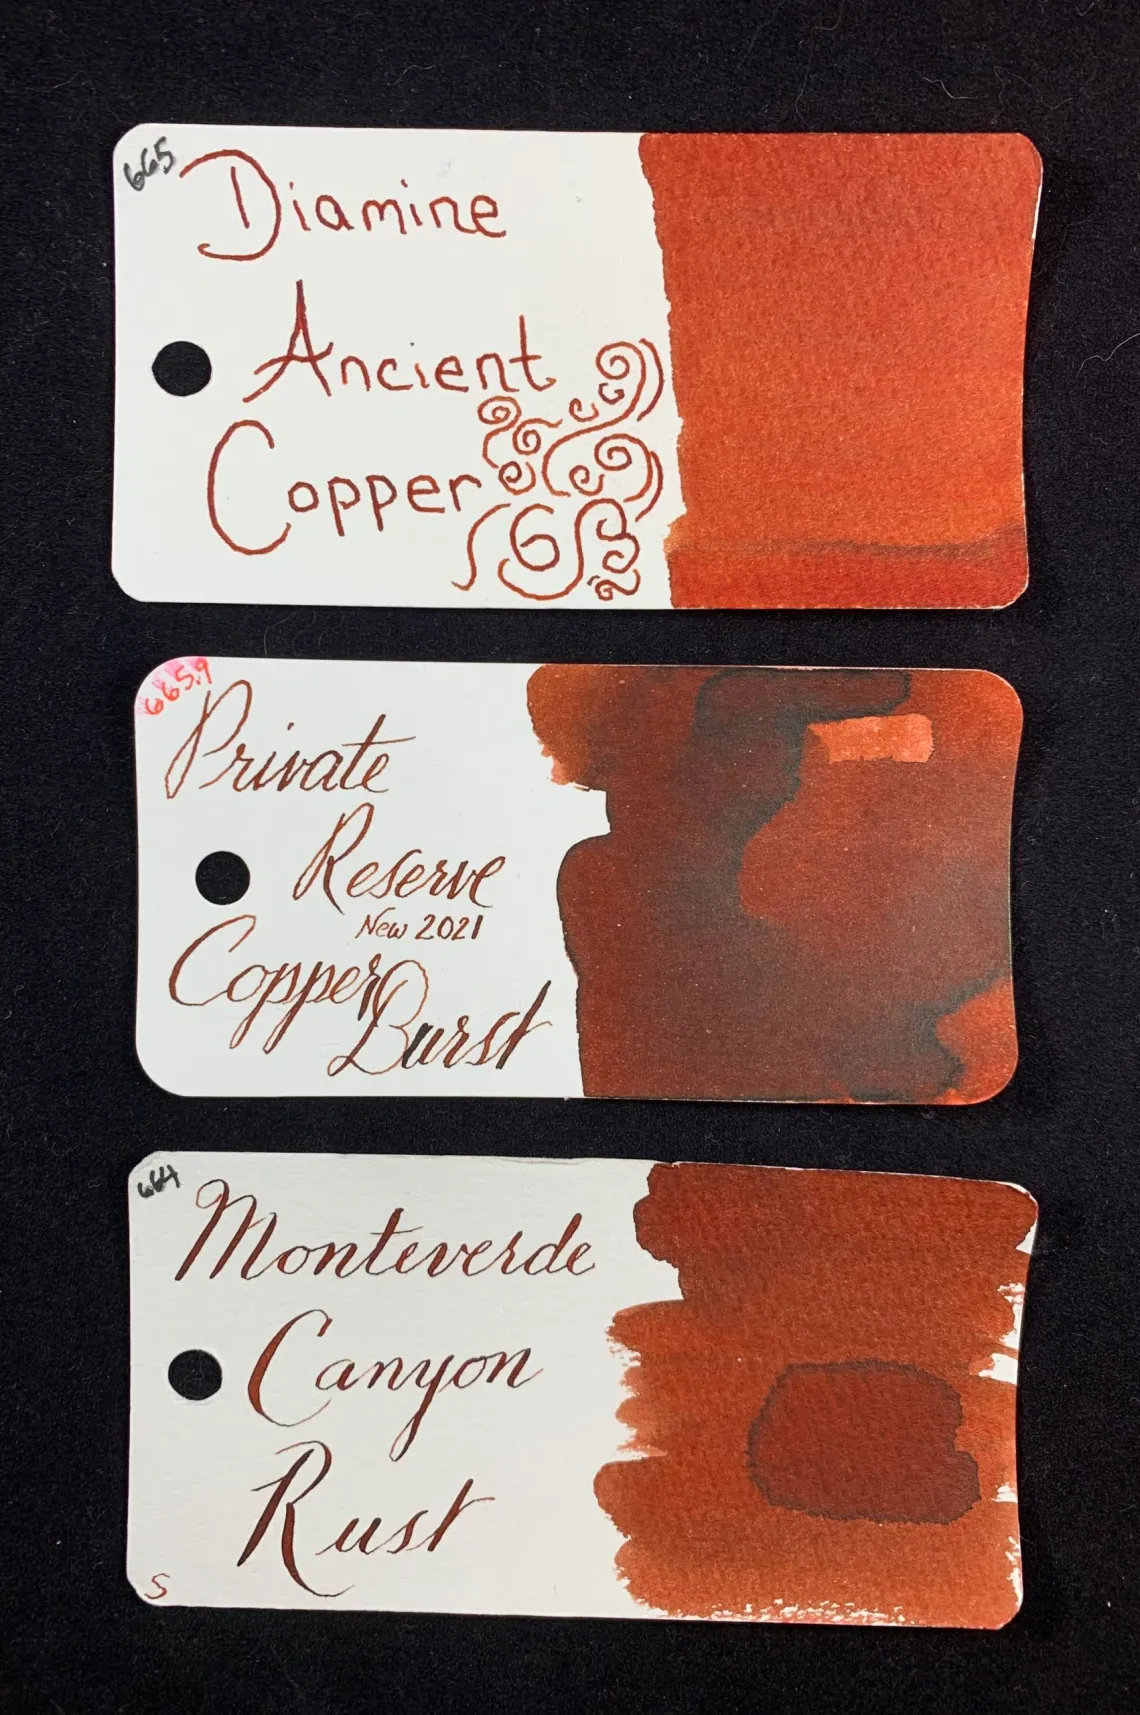 665
Diamine
Ancient
Copper
665.9
Private
Reserve
New 2021
Copper
Burst
664
Monteverde
Canyon
Rust
S